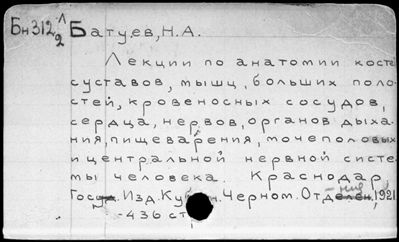 Бн312 Л/2 Батуев, Н.А.
Лекции по анатомии косте
суставов, мышц, больших поло-
стей, кровеносных сосудов,
сердца, нервов, органов дыха-
ния, пищеварения, мочеполовых
и центральной нервной систе
мы человека. Краснодар,
Госуд. Изд. Кубан. Черном. Отделение, 1921
-436 ст.